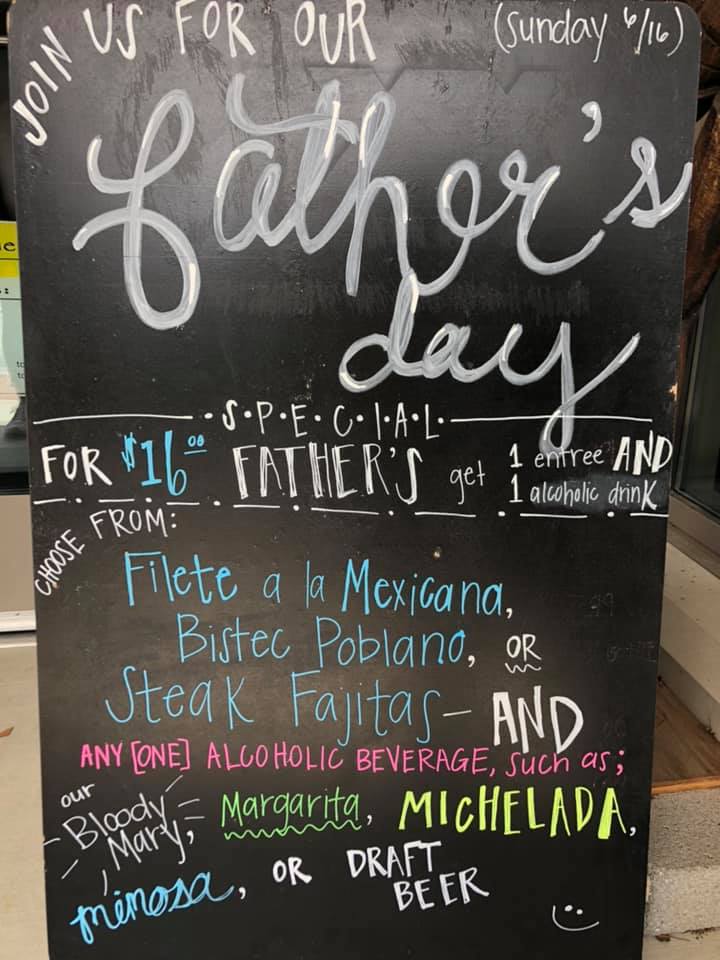 JOIN US FOR OUR (Sunday 6/16)
father's
day
S·P·E·C·I·A·L
FOR $16.00 FATHER'S get 1 entree AND
1 alcoholic drink
CHOOSE FROM:
Filete a la Mexicana,
Bistec Poblano, OR
Steak Fajitas- AND
ANY [ONE] ALCOHOLIC BEVERAGE, such as;
our Bloody Mary, Margarita, MICHELADA,
mimosa, OR DRAFT BEER